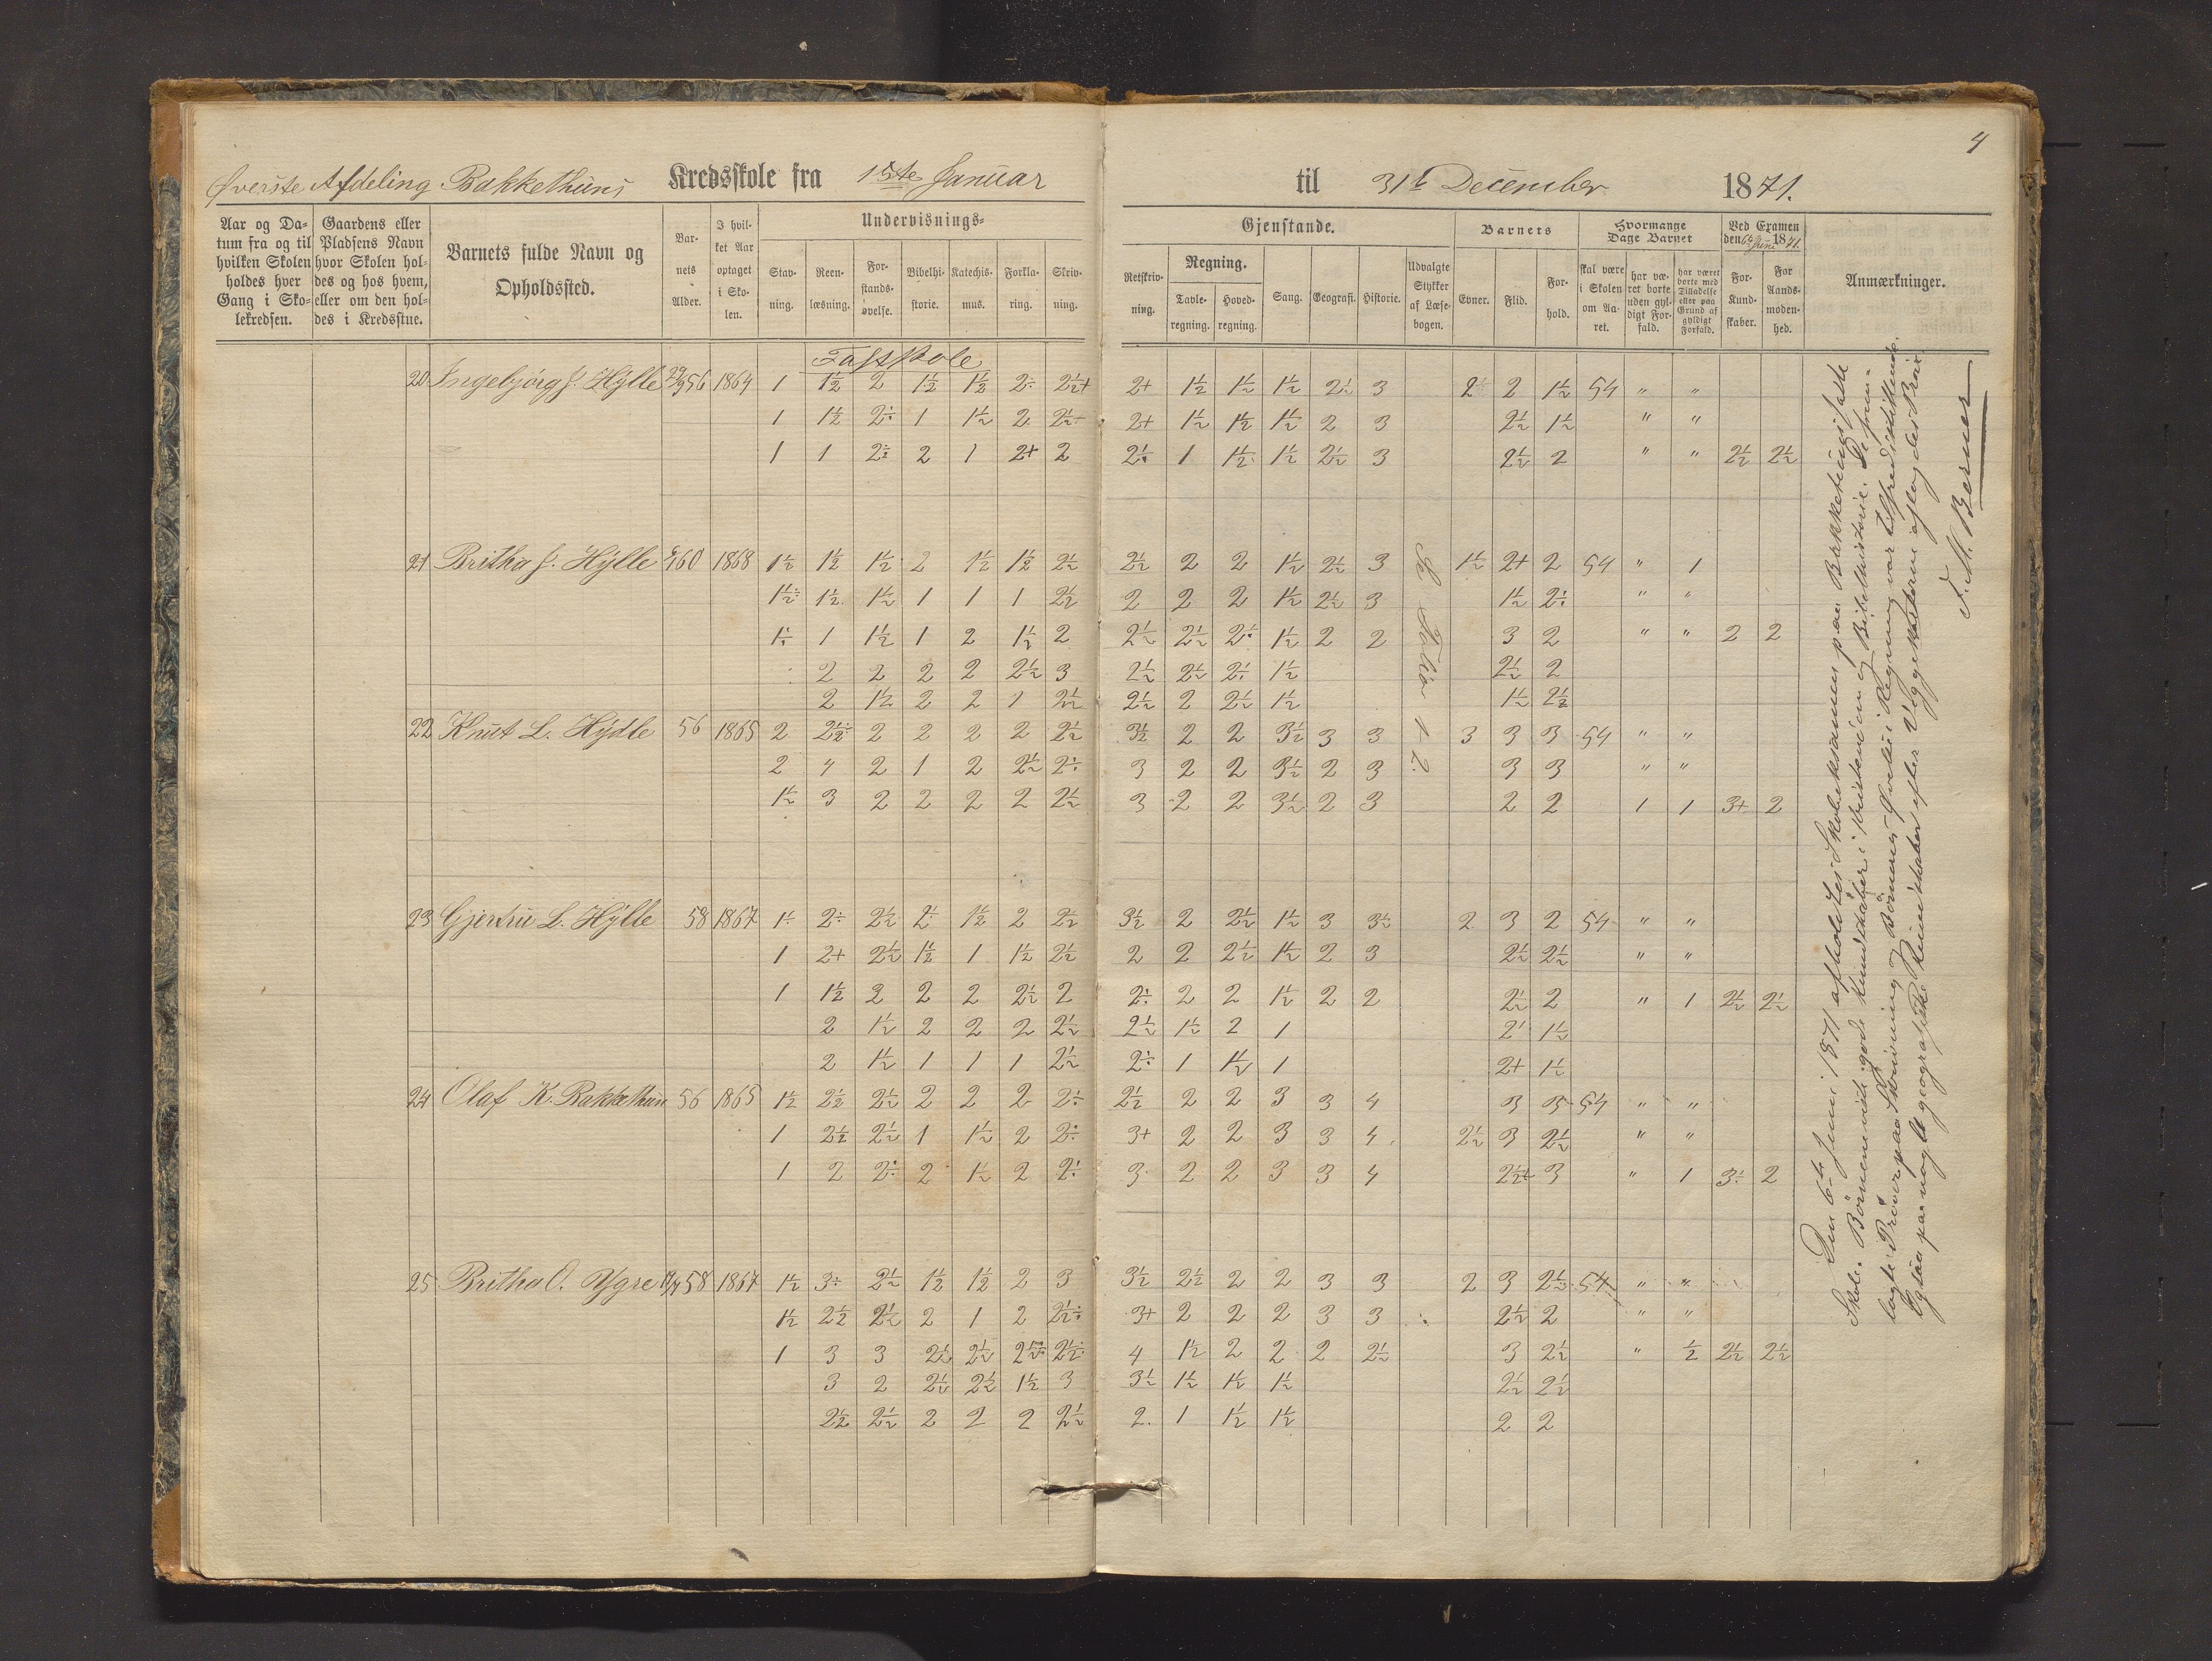 4
Øverste Afdeling Bakkethuns Kredsskole fra 1ste Januar til 31te December 1871.
Aar og Datum fra og til hvilken Skolen holdes hver Gang i Skolekredsen.
Gaardens eller Pladsens Navn hvor Skolen holdes og hos hvem, eller om den holdes i Kredsstue.
Barnets fulde Navn og Opholdssted.
Barnets Alder.
I hvilket Aar optaget i Skolen.
Undervisnings=
Stavning. Reenlæsning. Forstandsøvelse. Bibelhistorie. Katechismus. Forklaring. Skrivning.
Gjenstande.
Retskrivning. Regning. Tavleregning. Hovedregning. Sang. Geografi. Historie. Udvalgte Stykker af Læsebogen.
Barnets
Evner. Flid. Forhold.
Hvormange Dage Barnet
skal være i Skolen om Aaret. har været borte uden gyldigt Forfald. har været borte med Tilladelse eller paa Grund af gyldigt Forfald.
Ved Examen den 6te Juni 1871.
For Kundskaber. For Aandsmodenhed.
Anmærkninger.
Fastskole
20 Ingebjörg J. Hÿlle 29/9 56 1864 1 1½ 2 1½ 1½ 2÷ 2½+ 2+ 1½ 1½ 1½ 2½ 3 2½ 2 1½ 54 " "
1 1½ 2÷ 1 1½ 2 2½+ 2+ 1½ 1½ 1½ 2 3 2½ 1½ " "
1 1 2÷ 2 1 2+ 2 2÷ 1 1½ 1½ 2½ 3 2½ 2 " " 2½ 2½
21 Britha J. Hÿlle 60 1868 1½ 1½ 1½ 2 1½ 1½ 2½ 2½ 2 2 1½ 2½ 3 1½ 2+ 2 54 " 1
1½÷ 1½ 1½ 1 1 1 2½ 2 2 2 1½ 2½ 3 1½ 2÷ " "
1÷ 1 1½ 1 2 1½ 2 2½ 2½ 2÷ 1½ 2 2 3 2 " " 2 2
2 2 2 2 2½ 3 2½ 2½ 2÷ 1½ 2½ 2
2 1½ 2 2 1 2½ 2½ 2 2½ 1½ 1½ 2½
22 Knut L. Hÿdle 56 1865 2 2½÷ 2 2 2 2 2½ 3½ 2 2 3½ 3 3 3 3 3 54 " "
2 4 2 1 2 2½ 2÷ 3 2 2 3½ 2 3 3 3 " "
1½ 3 2 2 2 2 2½ 3 2 2 3½ 2 3 2 2 1 1 3+ 2
23 Gjertru L. Hÿlle 58 1867 1÷ 2÷ 2½ 2÷ 1½ 2 2½ 3½ 2 2½ 1½ 3 3½ 2 3 2 54 " "
1 2+ 2½ 1½ 1 1½ 2½ 2 2 2½ 1½ 2 3 2½ 2½ " "
1 1½ 2 2 2 2½ 2 2÷ 2 2 1½ 2 2 2½ 2 " 1 2½ 2½
2 1½ 2 2 2 2½ 2½ 1½ 2 1 2 1½
2 1½ 1 1 1 2½ 2÷ 1 1½ 1 2+ 1½
24 Olaf K. Bakkethun 56 1865 1½ 2½ 2½ 2 2 2 2÷ 2½ 2 2 3 3 4 3 3 54 " "
1 2½ 2½ 1 1½ 2 2÷ 3+ 2 2 3 3 4 2½ 3 2½ " "
1 2 2÷ 2 1½ 2 2÷ 3 2 2 3 3 4 2½+ 3 " 1 3÷ 2
25 Britha O. Ygre 58 1867 1½ 3÷ 2½ 1½ 1½ 2 3 3½ 2½ 2 2 3 3 2 3 2½ 54 " "
1½ 2½ 2½ 2 1 2 2½÷ 3+ 2 2 2 3 3 2½ 2 " "
1 3 3 2½ 2½ 2½÷ 2½ 4 1½ 2 2 2 2½ 3 2½ " ½ 2½ 2½
3 2 2½ 2½ 1½ 3 3½ 1½ 1½ 1½ 2½ 2½
2½ 2½ 2 2 2 2½ 2 1 1½ 1½ 2 2
Den 6te Juni 1871 afholdtes Skoleeksamen paa Bakketuns faste
Skole. Børnene viste gode Kundskaber i Kristend. og Bibelhistorie. De frem=
lagte Prøver paa Skrivning, og Børnenes Færdighed i Regning var tilfredsstillende.
Ogsaa paa nogle geografiske Kundskaber efter Væggekarterne aflagdes Prøve.
J. M. Berner